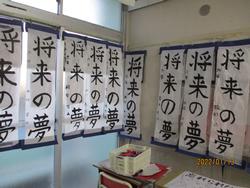 将来の夢
将来の夢
将来の夢
将来の夢
将来の夢
将来の夢
将来の夢
将来の夢
2022/01/13